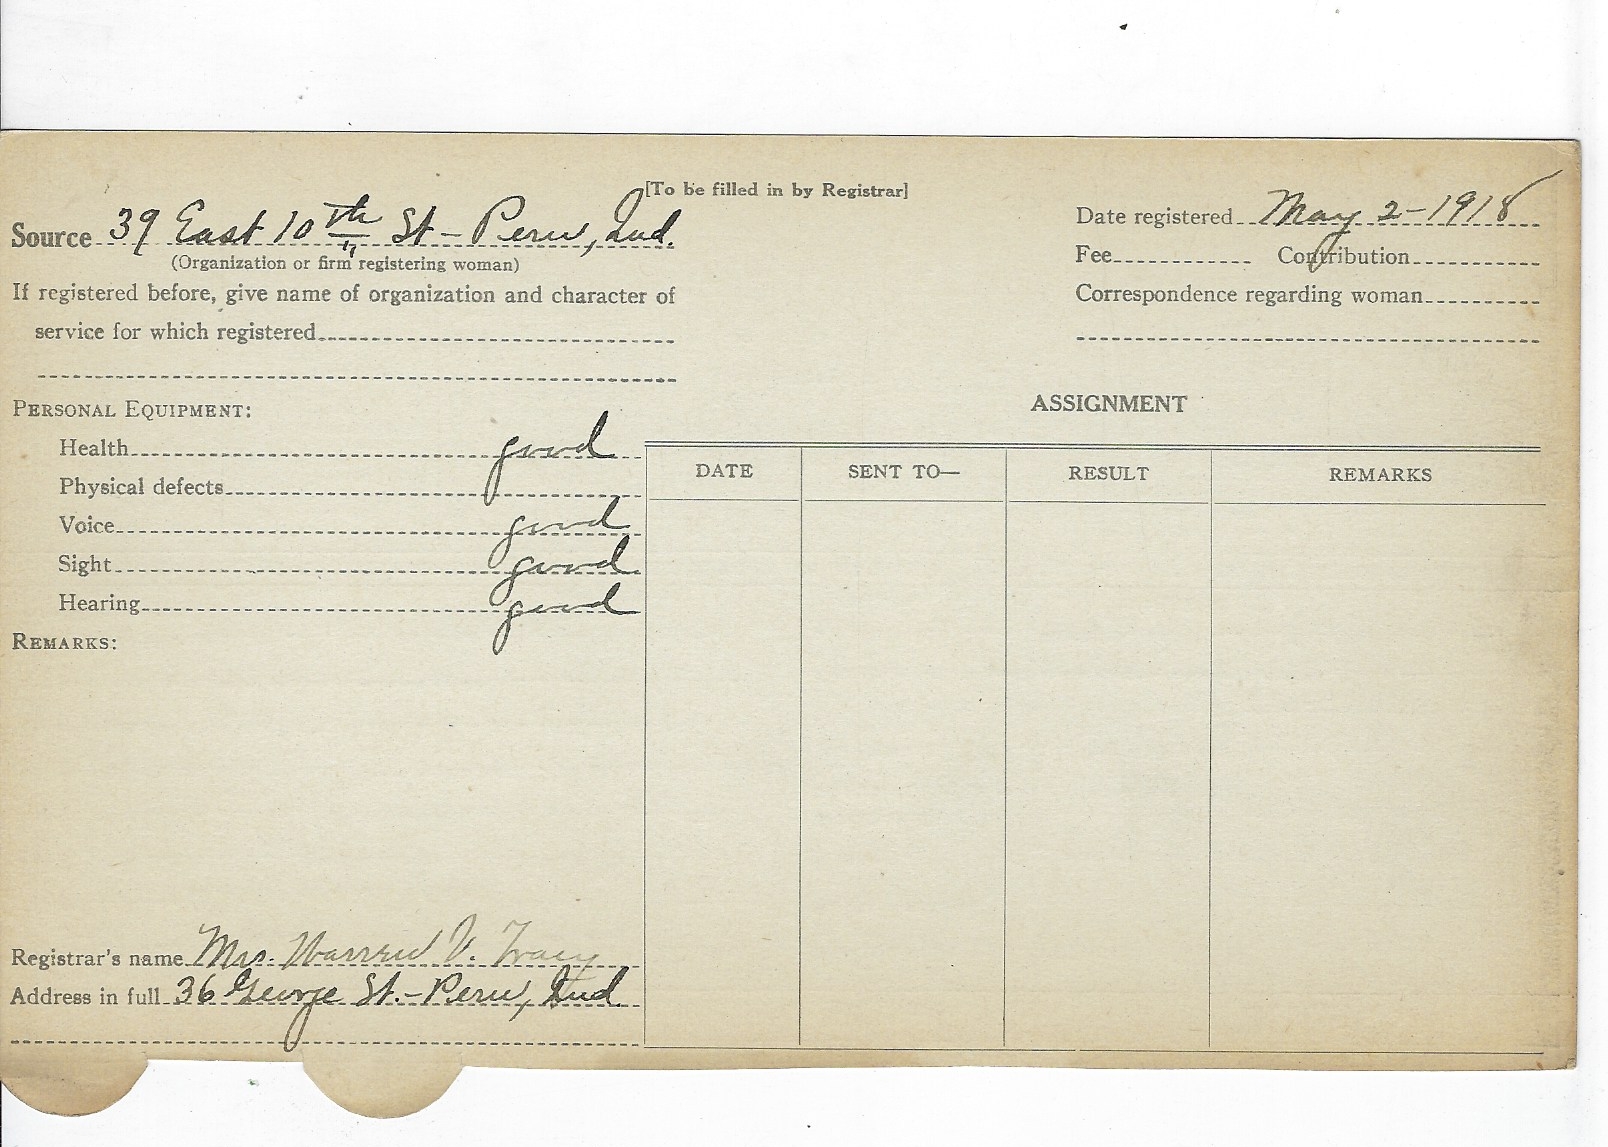 [To be filled in by Registrar]
Source 39 East 10th St - Peru, Ind.
(Organization or firm registering woman)
If registered before, give name of organization and character of
service for which registered
Date registered May 2-1918
Fee Contribution
Correspondence regarding woman
PERSONAL EQUIPMENT:
Health good
Physical defects
Voice good
Sight good
Hearing good
REMARKS:
ASSIGNMENT
DATE SENT TO— RESULT REMARKS
Registrar's name Mrs. Warren V. Tracy
Address in full 36 George St. - Peru, Ind.